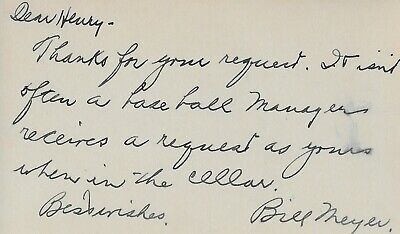 Dear Henry -
Thanks for your request. It isn't
often a baseball managers
receives a request as yours
when in the cellar.
Best wishes. Bill Meyer.